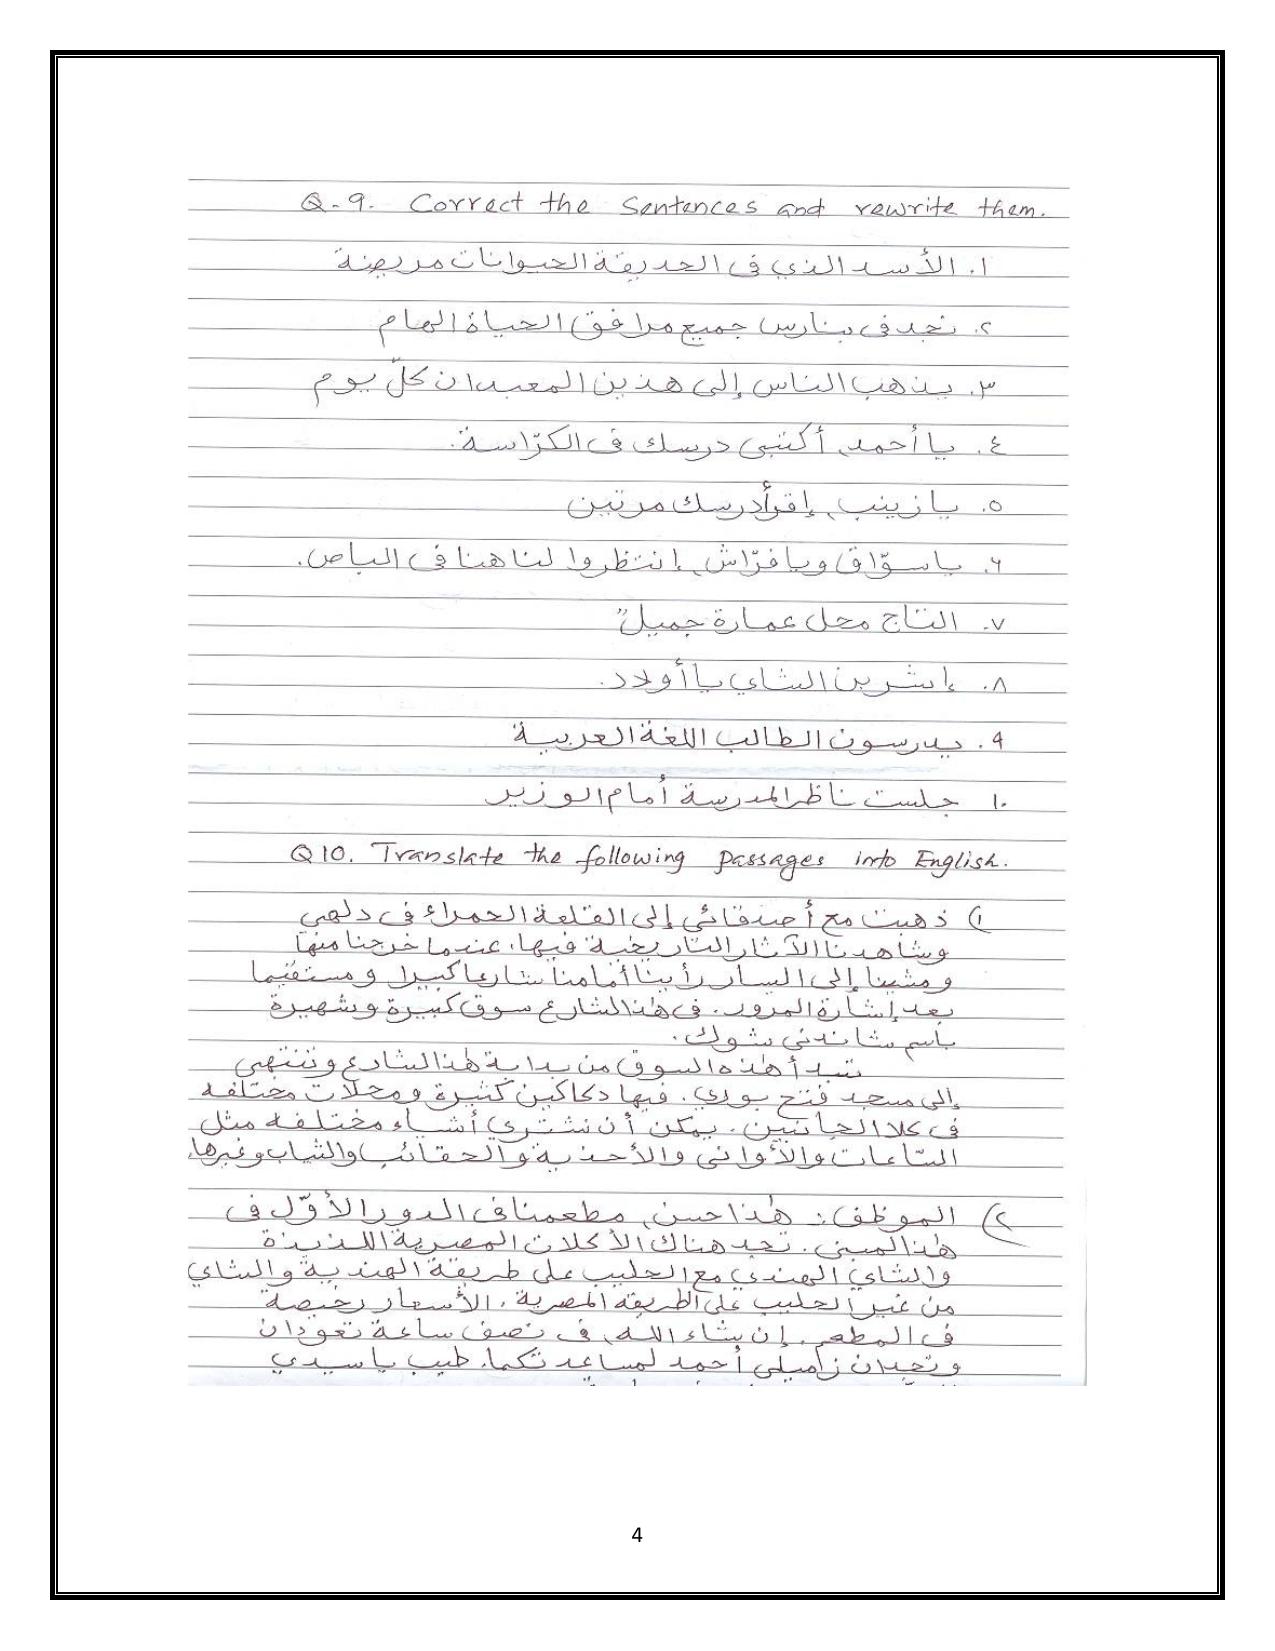 Q-9. Correct the Sentences and rewrite them.
١. الأسد الذي فى الحديقة الحيوانات مريضة
٢. نجد فى بنارس جميع مرافق الحياة الهام
٣. يذهب الناس إلى هذين المعبدان كلّ يوم
٤. يا أحمد، أكتبى درسك فى الكرّاسة.
٥. يا زينب، إقرأ درسك مرتين
٦. يا سوّاق ويا فرّاش، إنتظروا لنا هنا فى الباص.
٧. التاج محل عمارة جميلٌ
٨. إشربن الشاي يا أولاد.
٩. يدرسون الطالب اللغة العربية
١٠. جلست ناظر المدرسة أمام الوزير
Q10. Translate the following passages into English.
١) ذهبت مع أصدقائي إلى القلعة الحمراء فى دلهي
وشاهدنا الآثار التاريخية فيها، عندما خرجنا منها
ومشينا إلى اليسار رأينا أمامنا شارعا كبيرا ومستقيما
بعد إشارة المرور. فى هٰذا الشارع سوق كبيرة وشهيرة
باسم شاندني شوك.
تبدأ هٰذه السوق من بداية هٰذا الشارع وتنتهي
إلى مسجد فتح بوري. فيها دكاكين كثيرة ومحلات مختلفه
فى كلا الجانبين. يمكن أن نشتري أشياء مختلفه مثل
السّاعات والأوانى والأحذية والحقائب والثياب وغيرها.
٢) الموظف: هٰذا حسن، مطعمنا فى الدور الأوّل فى
هٰذا المبنى. تجد هناك الأكلات المصرية اللذيذة
والشاي الهندي مع الحليب على طريقة الهندية والشاي
من غير الحليب على الطريقة المصرية. الأسعار رخيصة
فى المطعم. إن شاء الله، فى نصف ساعة تعودان
وتجدان زاميلى أحمد لمساعدتكما. طيب يا سيدي
4